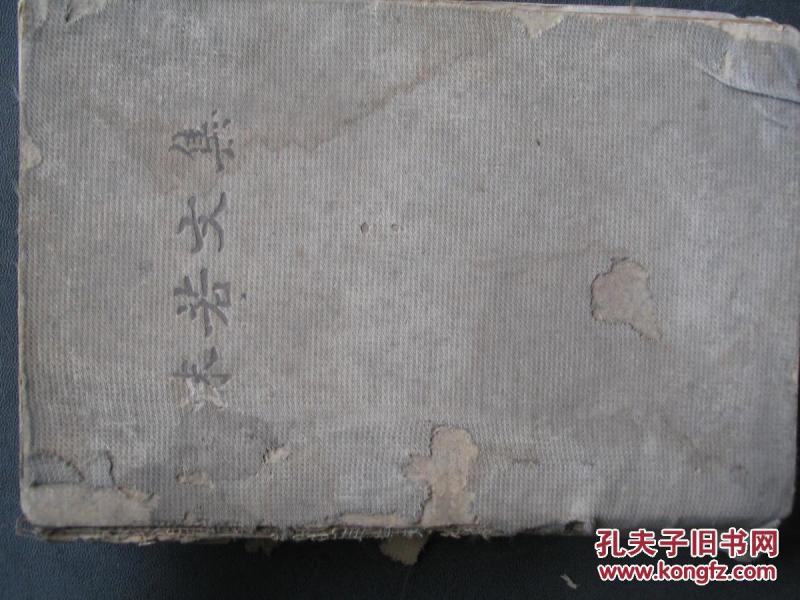 沫若文集
孔夫子旧书网
www.kongfz.com